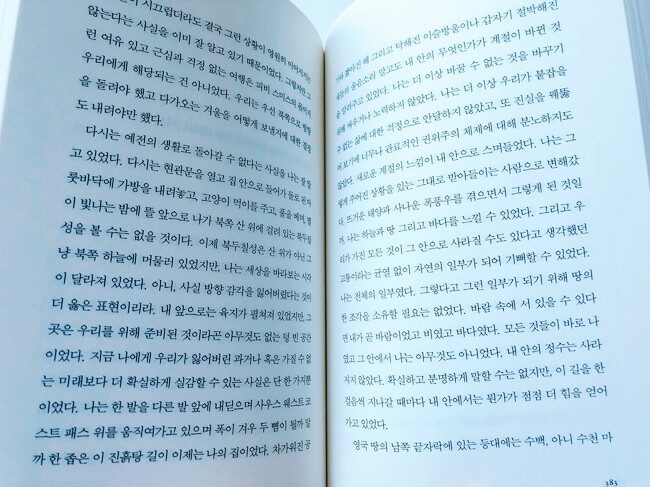 시끄럽더라도 결국 그런 상황이 영원히 이어지지는
않는다는 사실을 이미 잘 알고 있기 때문이었다. 그렇지만 그
런 여유 있고 근심과 걱정 없는 여행은 피비 스미스의 몫이지
우리에게 해당되는 건 아니었다. 우리는 우선 북쪽으로 방향
을 돌려야 했고 다가오는 겨울을 어떻게 보낼지에 대한 결정
도 내려야만 했다.
다시는 예전의 생활로 돌아갈 수 없다는 사실을 나는 잘 알
고 있었다. 다시는 현관문을 열고 집 안으로 들어가 돌로 된 마
룻바닥에 가방을 내려놓고, 고양이 먹이를 주고, 불을 때며, 별
이 빛나는 밤에 뜰 앞으로 나가 북쪽 산 위에 걸려 있는 북두칠
성을 볼 수는 없을 것이다. 이제 북두칠성은 산 위가 아닌 그
냥 북쪽 하늘에 머물러 있었지만, 나는 세상을 바라보는 시각
이 달라져 있었다. 아니, 사실 방향 감각을 잃어버렸다는 것이
더 옳은 표현이리라. 내 앞으로는 육지가 펼쳐져 있었지만, 그
곳은 우리를 위해 준비된 것이라곤 아무것도 없는 텅 빈 공간
이었다. 지금 나에게 우리가 잃어버린 과거나 혹은 가질 수 없
는 미래보다 더 확실하게 실감할 수 있는 사실은 단 한 가지뿐
이었다. 나는 한 발을 다른 발 앞에 내딛으며 사우스 웨스트 코
스트 패스 위를 움직여가고 있으며 폭이 겨우 두 뼘이 될까 말
까 한 좁은 이 진흙탕 길이 이제는 나의 집이었다. 차가워진 공
그리고 탁해진 이슬방울이나 갑자기 절박해진
울음소리 말고도 내 안의 무엇인가가 계절이 바뀐 것
을 알려주고 있었다. 나는 더 이상 바꿀 수 없는 것을 바꾸기
위해 싸우거나 노력하지 않았다. 나는 더 이상 우리가 붙잡을
수 없는 삶에 대한 걱정으로 안달하지 않았고, 또 진실을 꿰뚫
어 보기에 너무나 관료적인 권위주의 체제에 대해 분노하지도
않았다. 새로운 계절의 느낌이 내 안으로 스며들었다. 나는 그
렇게 주어진 상황을 있는 그대로 받아들이는 사람으로 변해갔
다. 뜨거운 태양과 사나운 폭풍우를 겪으면서 그렇게 된 것일
까. 나는 하늘과 땅 그리고 바다를 느낄 수 있었다. 그리고 우
리가 가진 모든 것이 그 안으로 사라질 수도 있다고 생각했던
고통이라는 균열 없이 자연의 일부가 되어 기뻐할 수 있었다.
나는 전체의 일부였다. 그렇다고 그런 일부가 되기 위해 땅의
한 조각을 소유할 필요는 없었다. 바람 속에 서 있을 수 있다
면 내가 곧 바람이었고 비였고 바다였다. 모든 것들이 바로 나
였고 그 안에서 나는 아무것도 아니었다. 내 안의 정수는 사라
지지 않았다. 확실하고 분명하게 말할 수는 없지만, 이 길을 한
걸음씩 지나갈 때마다 내 안에서는 뭔가가 점점 더 힘을 얻어
가고 있었다.
영국 땅의 남쪽 끝자락에 있는 등대에는 수백, 아니 수천 마
383